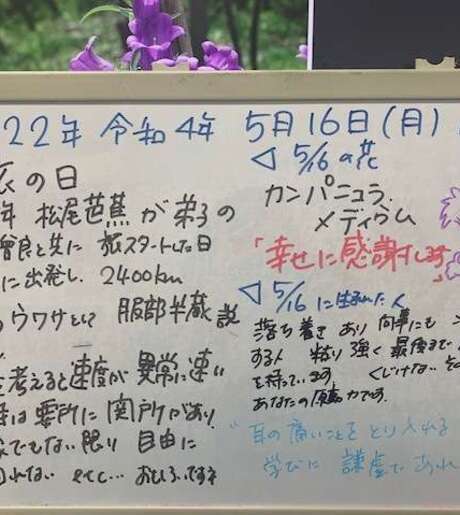 22年 令和4年 5月16日(月)
の日
年 松尾芭蕉が弟子の
曾良と共に 旅スタートした日
に出発し、2400km
ウワサとして 服部半蔵説
を考えると速度が異常に速い
時は要所に関所があり
でもない限り 自由に
れない etc… おもしろいですネ
◁ 5/16 の花
カンパニュラ.
メディウム
「幸せに感謝します
◁ 5/16 に生まれた人
落ち着き あり 何事にも
する人 粘り強く 最後まで
を持っています くじけない その
あなたの原動力です.
"耳の痛いことを とり入れる
学びに 謙虚であれ